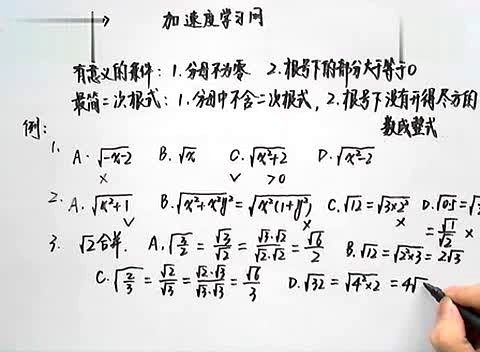 加速度学习网
有意义的条件: 1.分母不为零 2.根号下的部分大于等于0
最简二次根式: 1.分母中不含二次根式, 2.根号下没有开得尽方的
数或整式
例:
1. A. √(-x-2) B. √x C. √(x²+2) D. √(x²-2)
× √ >0
2. A. √(x²+1) B. √(x²+x²y²) = √(x²(1+y²)) C. √12 = √(3×2²) D. √0.5 =
√ × × = √1/√2 ×
3. √2合并. A. √(3/2) = √3/√2 = √3·√2/√2·√2 = √6/2 B. √12 = √(2²×3) = 2√3
C. √(2/3) = √2/√3 = √2·√3/√3·√3 = √6/3 D. √32 = √(4²×2) = 4√